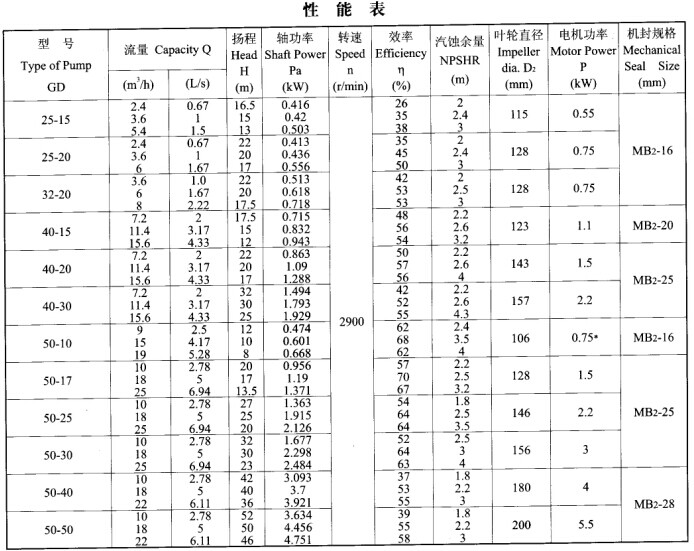 性 能 表
型 号 Type of Pump GD | 流量 Capacity Q | 扬程 Head H (m) | 轴功率 Shaft Power Pa (kW) | 转速 Speed n (r/min) | 效率 Efficiency η (%) | 汽蚀余量 NPSHR (m) | 叶轮直径 Impeller dia. D₂ (mm) | 电机功率 Motor Power P (kW) | 机封规格 Mechanical Seal Size (mm)
(m³/h) | (L/s)
25-15 | 2.4 | 0.67 | 16.5 | 0.416 | 2900 | 26 | 2 | 115 | 0.55 | MB2-16
3.6 | 1 | 15 | 0.42 | 35 | 2.4
5.4 | 1.5 | 13 | 0.503 | 38 | 3
25-20 | 2.4 | 0.67 | 22 | 0.413 | 35 | 2 | 128 | 0.75
3.6 | 1 | 20 | 0.436 | 45 | 2.4
6 | 1.67 | 17 | 0.556 | 50 | 3
32-20 | 3.6 | 1.0 | 22 | 0.513 | 42 | 2 | 128 | 0.75
6 | 1.67 | 20 | 0.618 | 53 | 2.5
8 | 2.22 | 17.5 | 0.718 | 53 | 3
40-15 | 7.2 | 2 | 17.5 | 0.715 | 48 | 2.2 | 123 | 1.1 | MB2-20
11.4 | 3.17 | 15 | 0.832 | 56 | 2.6
15.6 | 4.33 | 12 | 0.943 | 54 | 3.2
40-20 | 7.2 | 2 | 22 | 0.863 | 50 | 2.2 | 143 | 1.5 | MB2-25
11.4 | 3.17 | 20 | 1.09 | 57 | 2.6
15.6 | 4.33 | 17 | 1.288 | 56 | 4
40-30 | 7.2 | 2 | 32 | 1.494 | 42 | 2.2 | 157 | 2.2
11.4 | 3.17 | 30 | 1.793 | 52 | 2.6
15.6 | 4.33 | 25 | 1.929 | 55 | 4.3
50-10 | 9 | 2.5 | 12 | 0.474 | 62 | 2.4 | 106 | 0.75* | MB2-16
15 | 4.17 | 10 | 0.601 | 68 | 3.5
19 | 5.28 | 8 | 0.668 | 62 | 4
50-17 | 10 | 2.78 | 20 | 0.956 | 57 | 2.2 | 128 | 1.5 | MB2-25
18 | 5 | 17 | 1.19 | 70 | 2.5
25 | 6.94 | 13.5 | 1.371 | 67 | 3.2
50-25 | 10 | 2.78 | 27 | 1.363 | 54 | 1.8 | 146 | 2.2
18 | 5 | 25 | 1.915 | 64 | 2.5
25 | 6.94 | 20 | 2.126 | 64 | 3.5
50-30 | 10 | 2.78 | 32 | 1.677 | 52 | 2.5 | 156 | 3
18 | 5 | 30 | 2.298 | 64 | 3
25 | 6.94 | 23 | 2.484 | 63 | 4
50-40 | 10 | 2.78 | 42 | 3.093 | 37 | 1.8 | 180 | 4 | MB2-28
18 | 5 | 40 | 3.7 | 53 | 2.2
22 | 6.11 | 36 | 3.921 | 55 | 3
50-50 | 10 | 2.78 | 52 | 3.634 | 39 | 1.8 | 200 | 5.5
18 | 5 | 50 | 4.456 | 55 | 2.2
22 | 6.11 | 46 | 4.751 | 58 | 3